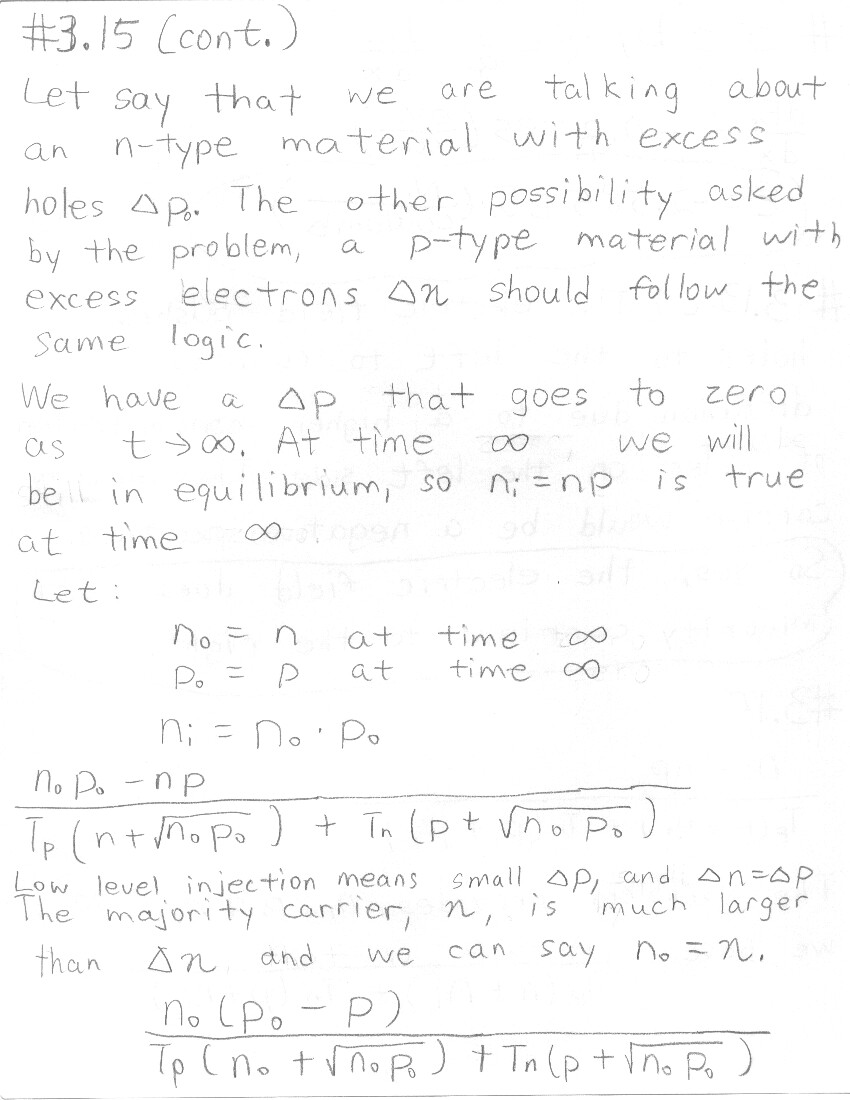 #3.15 (cont.)
Let say that we are talking about
an n-type material with excess
holes Δp₀. The other possibility asked
by the problem, a p-type material with
excess electrons Δn should follow the
same logic.
We have a Δp that goes to zero
as t → ∞. At time ∞, we will
be in equilibrium, so nᵢ = np is true
at time ∞.
Let:
n₀ = n at time ∞
p₀ = p at time ∞
nᵢ = n₀ · p₀
n₀ p₀ - np
τp (n + √n₀ p₀) + τn (p + √n₀ p₀)
Low level injection means small Δp, and Δn = Δp
The majority carrier, n, is much larger
than Δn and we can say n₀ = n.
n₀ (p₀ - p)
τp (n₀ + √n₀ p₀) + τn (p + √n₀ p₀)